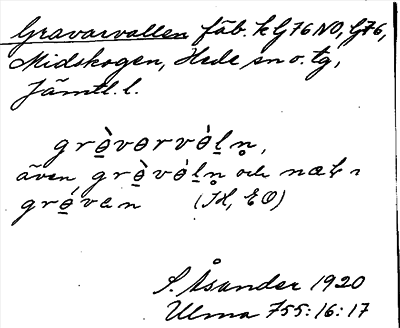 Gravarvallen fäb. k G76NO, G76,
Midskogen, Hede sn o. tg,
Jämtl. l.
grɵ̠̀vɵrvɵ́l̠n̥,
även grɵ̠̀vɵ́l̠n̥ och
grɵ̠́van (IH, EO)
S. Åsander 1920
Ulma 755:16:17